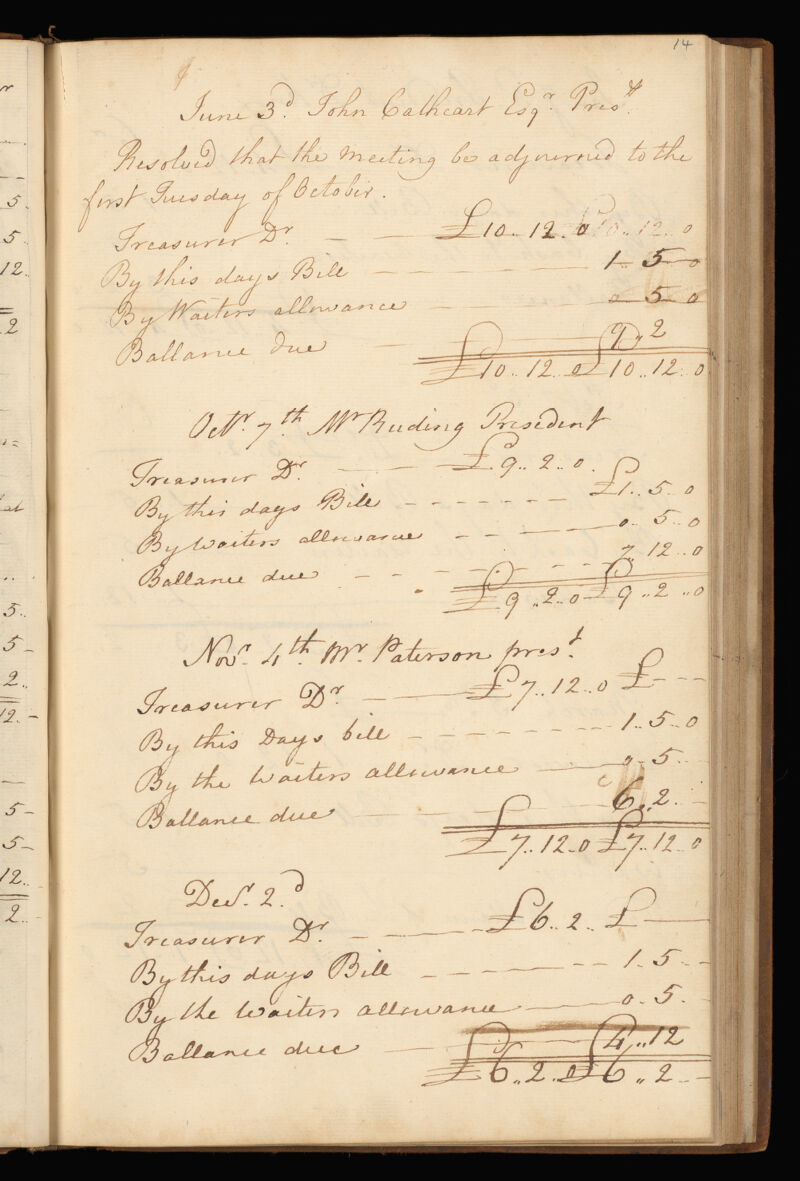 14
June 3d. John Cathcart Esqr. Prest.
Resolved that the meeting be adjourned to the
first Tuesday of October.
Treasurer Dr. £10..12..0 £10..12..0
By this days Bill 1..5-0
By Waiters allowance 0-5-0
Ballance due 9,,2
£10..12..0 £10..12..0
Octr. 7th. Mr Ruding President
Treasurer Dr. £9..2..0.
By this days Bill £1..5-0
By waiters allowance 0-5-0
Ballance due 7,,12..0
£9,,2-0 £9,,2,,0
Novr. 4th. Mr. Paterson prest.
Treasurer Dr. £7..12..0 £
By this Days bill 1..5-0
By the Waiters allowance 0-5-
Ballance due 6,,2.
£7..12-0 £7,,12-0
Decr. 2d
Treasurer Dr. £6..2.. £
By this days Bill 1-5-
By the waiters allowance 0-5-
Ballance due 4,,12
£6,,2..0 £6,,2--
5-
5-
12.
2
5-
5-
2..
12.-
5-
5-
12..
2..